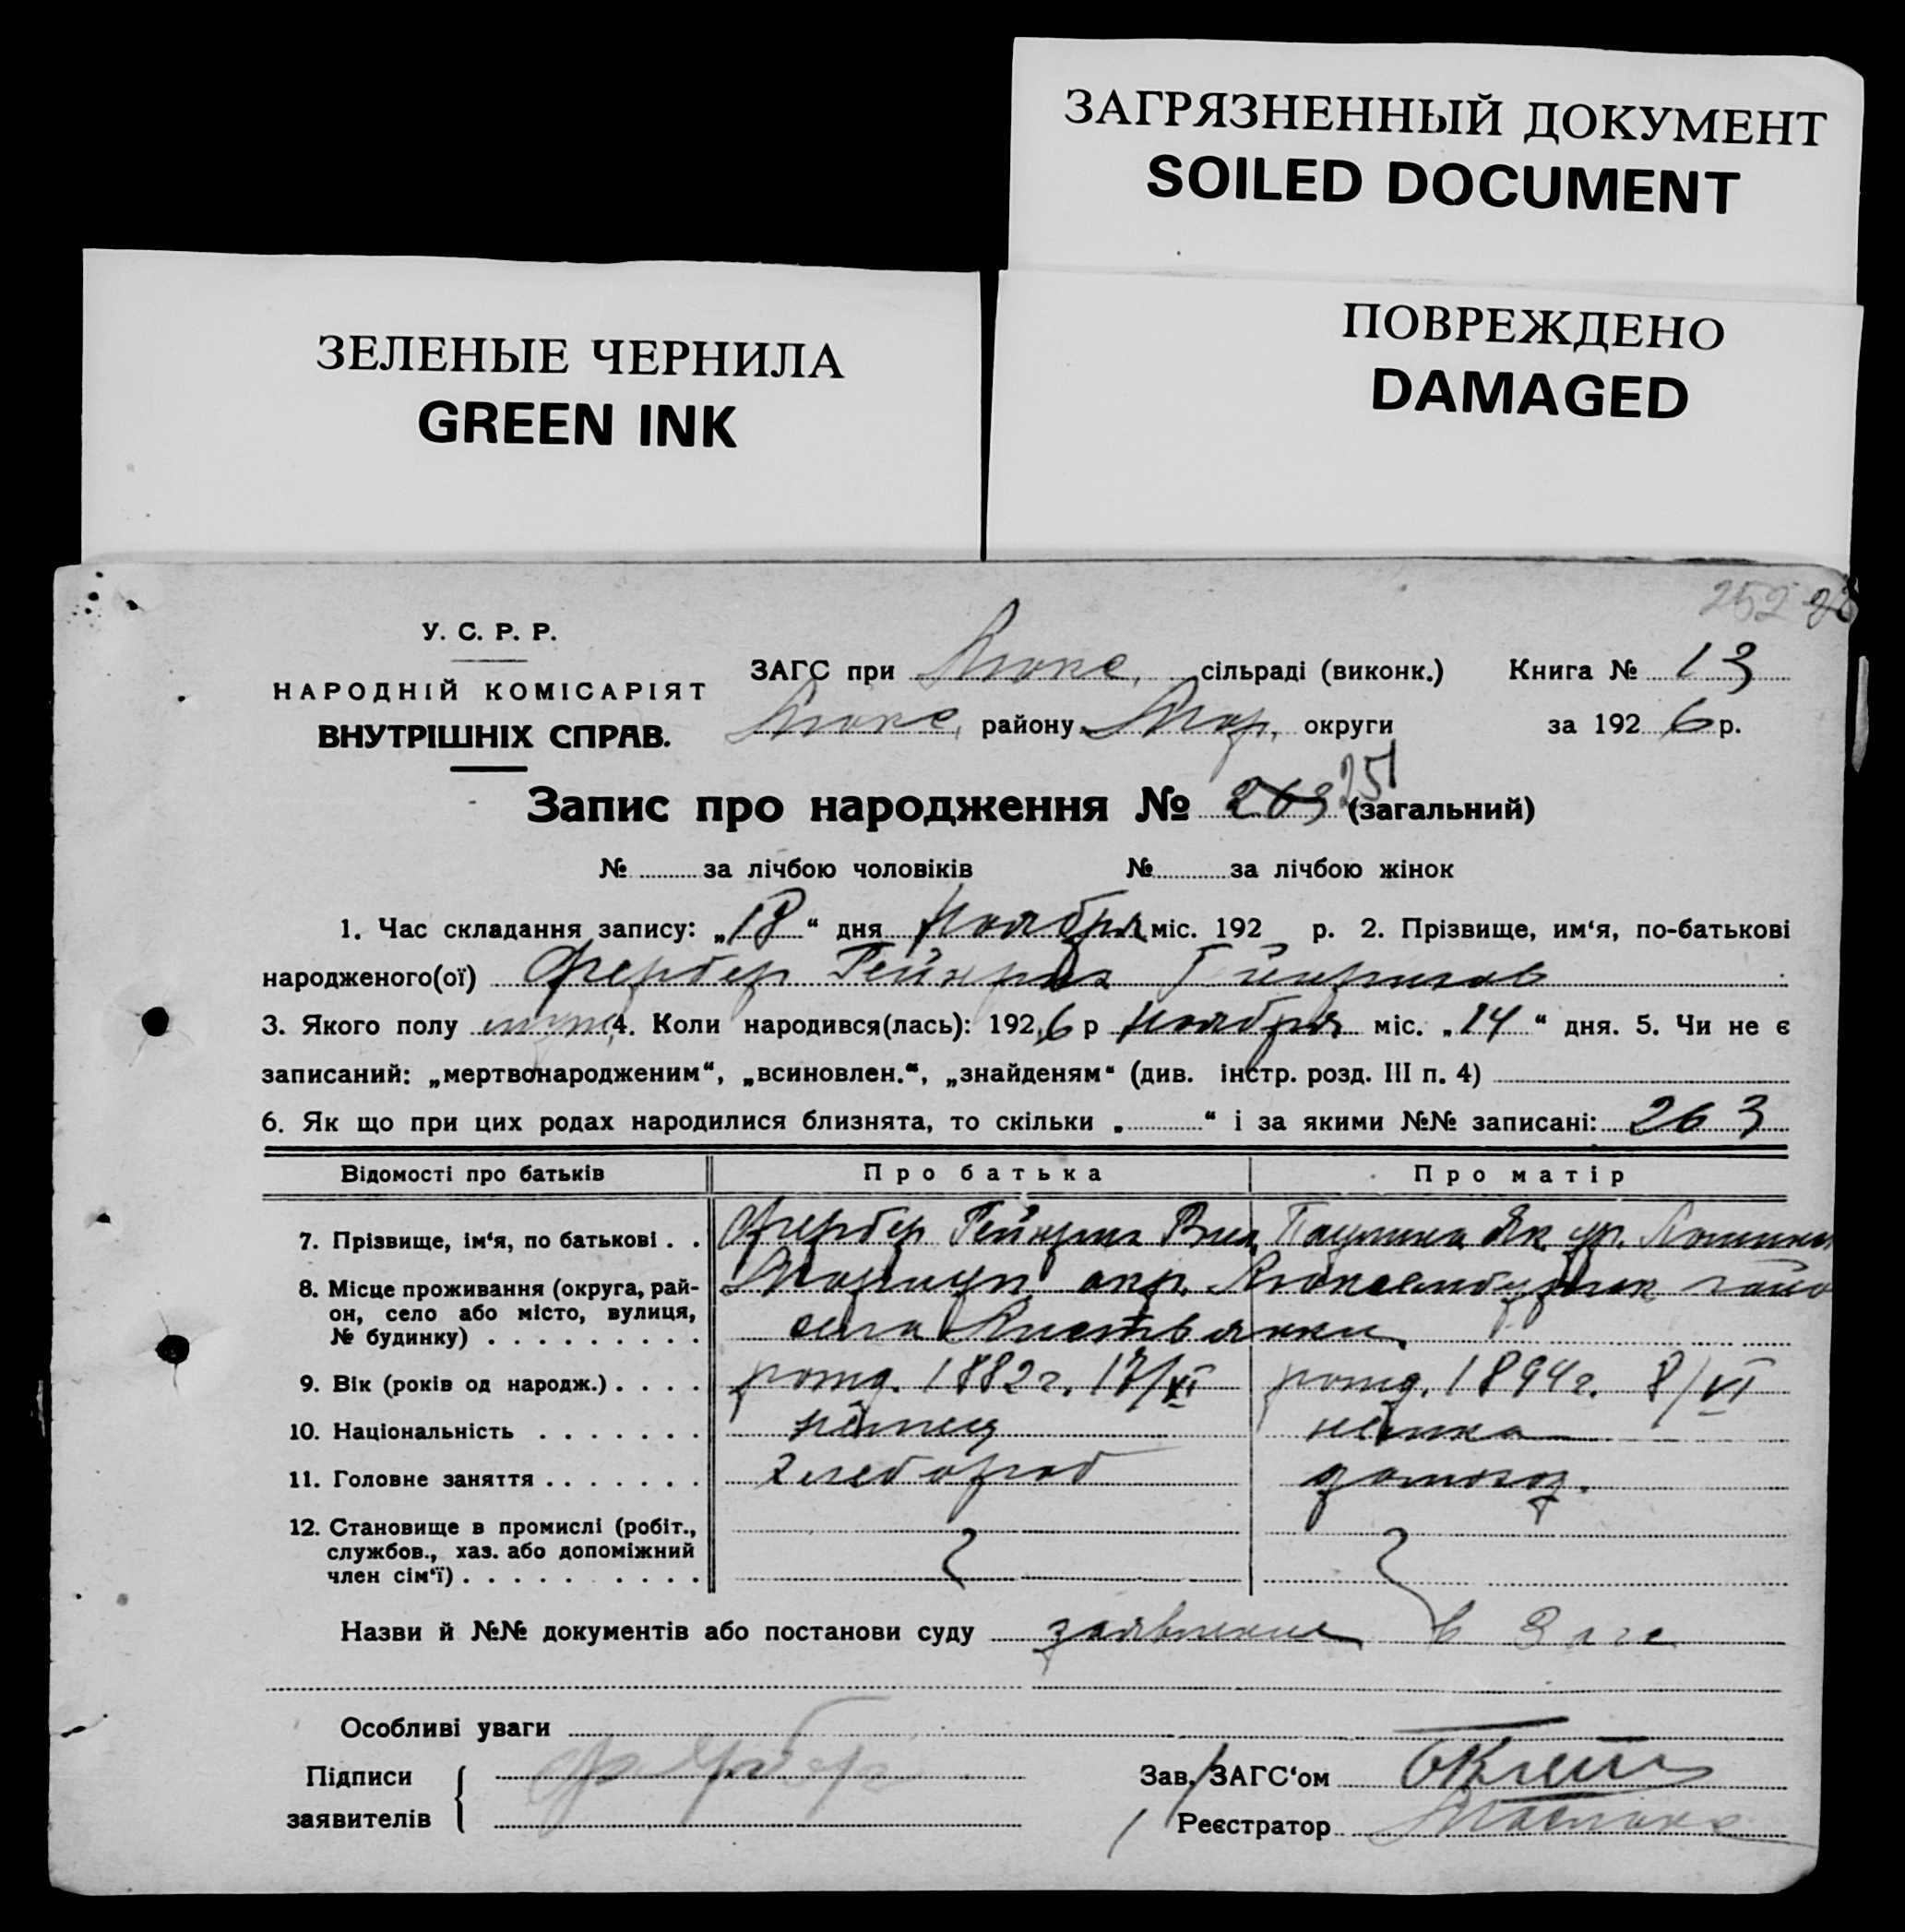 ЗАГРЯЗНЕННЫЙ ДОКУМЕНТ
SOILED DOCUMENT
ЗЕЛЕНЫЕ ЧЕРНИЛА
GREEN INK
ПОВРЕЖДЕНО
DAMAGED
252
У. С. Р. Р.
НАРОДНІЙ КОМІСАРІЯТ
ВНУТРІШНІХ СПРАВ.
ЗАГС при Люкс. сільраді (виконк.) Книга № 13
Люкс. району Мар. округи за 1926 р.
Запис про народження № 263 251 (загальний)
№ за лічбою чоловіків № за лічбою жінок
1. Час складання запису: „18“ дня Ноября міс. 192 р. 2. Прізвище, им‘я, по-батькові
народженого(ої) Фербер Гейнрих
3. Якого полу муж. 4. Коли народився(лась): 1926 р Ноября міс. „14“ дня. 5. Чи не є
записаний: „мертвонародженим“, „всиновлен.“, „знайденям“ (див. інстр. розд. III п. 4)
6. Як що при цих родах народилися близнята, то скільки „ “ і за якими №№ записані: 263
Відомості про батьків Про батька Про матір
7. Прізвище, ім‘я, по батькові . . Фербер Гейнрих Вил. Паулина Як. ур.
8. Місце проживання (округа, рай-
он, село або місто, вулиця,
№ будинку) . . . . . . . . . Мариуп. окр. Люксембургск. райо
села
9. Вік (років од народж.) . . . . рожд. 1882 г. 17/VI рожд. 1894 г. 8/VI
10. Національність . . . . . . . немец немка
11. Головне заняття . . . . . . . хлебороб домохоз.
12. Становище в промислі (робіт.,
службов., хаз. або допоміжний
член сім‘ї) . . . . . . . . . .
Назви й №№ документів або постанови суду заявление в Загс
Особливі уваги
Підписи Фербер Зав. ЗАГС‘ом
заявителів Реєстратор